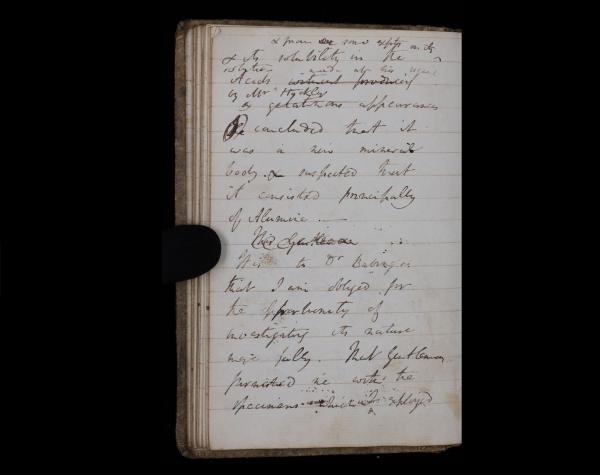 & from some expts on its
& its solubility in the
solution made at his request
Acids without producing
by Mr Hyckes
a gelatinous appearance
He concluded that it
was a new mineral
body & suspected that
it consisted principally
of Alumine —
This Gentleman
It is to Dr Babington
that I am obliged for
the opportunity of
investigating its nature
more fully. That Gentleman
furnished me with the
specimens which I employed